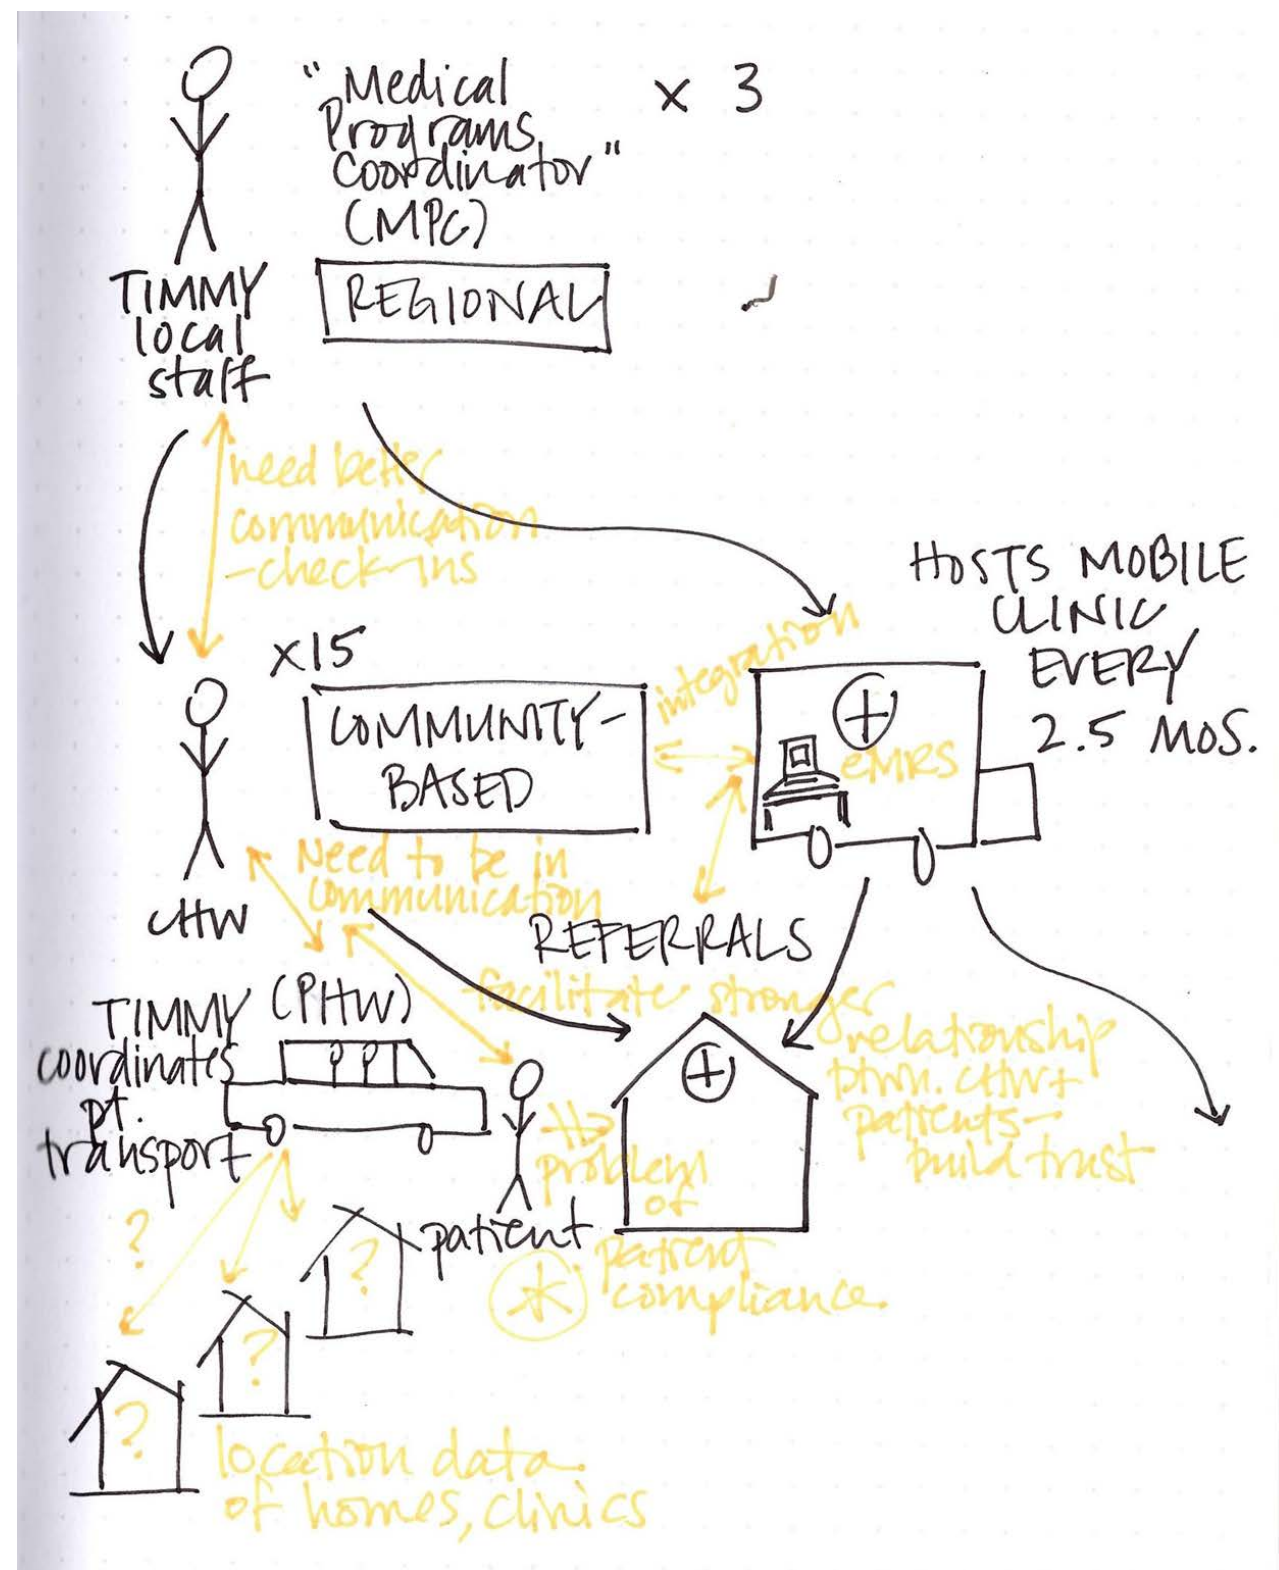 "Medical
Programs
Coordinator"
(MPC)
x 3
TIMMY
local
staff
REGIONAL
need better
communication
-check-ins
HOSTS MOBILE
CLINIC
EVERY
2.5 MOS.
x15
COMMUNITY-
BASED
integration
eMRS
CHW
Need to be in
communication
REFERRALS
(PHW)
TIMMY
coordinates
pt.
transport
facilitate stronger
relationship
btwn. CHW+
patients-
build trust
patient
problem
of
patient
compliance.
?
?
?
?
location data
of homes, clinics